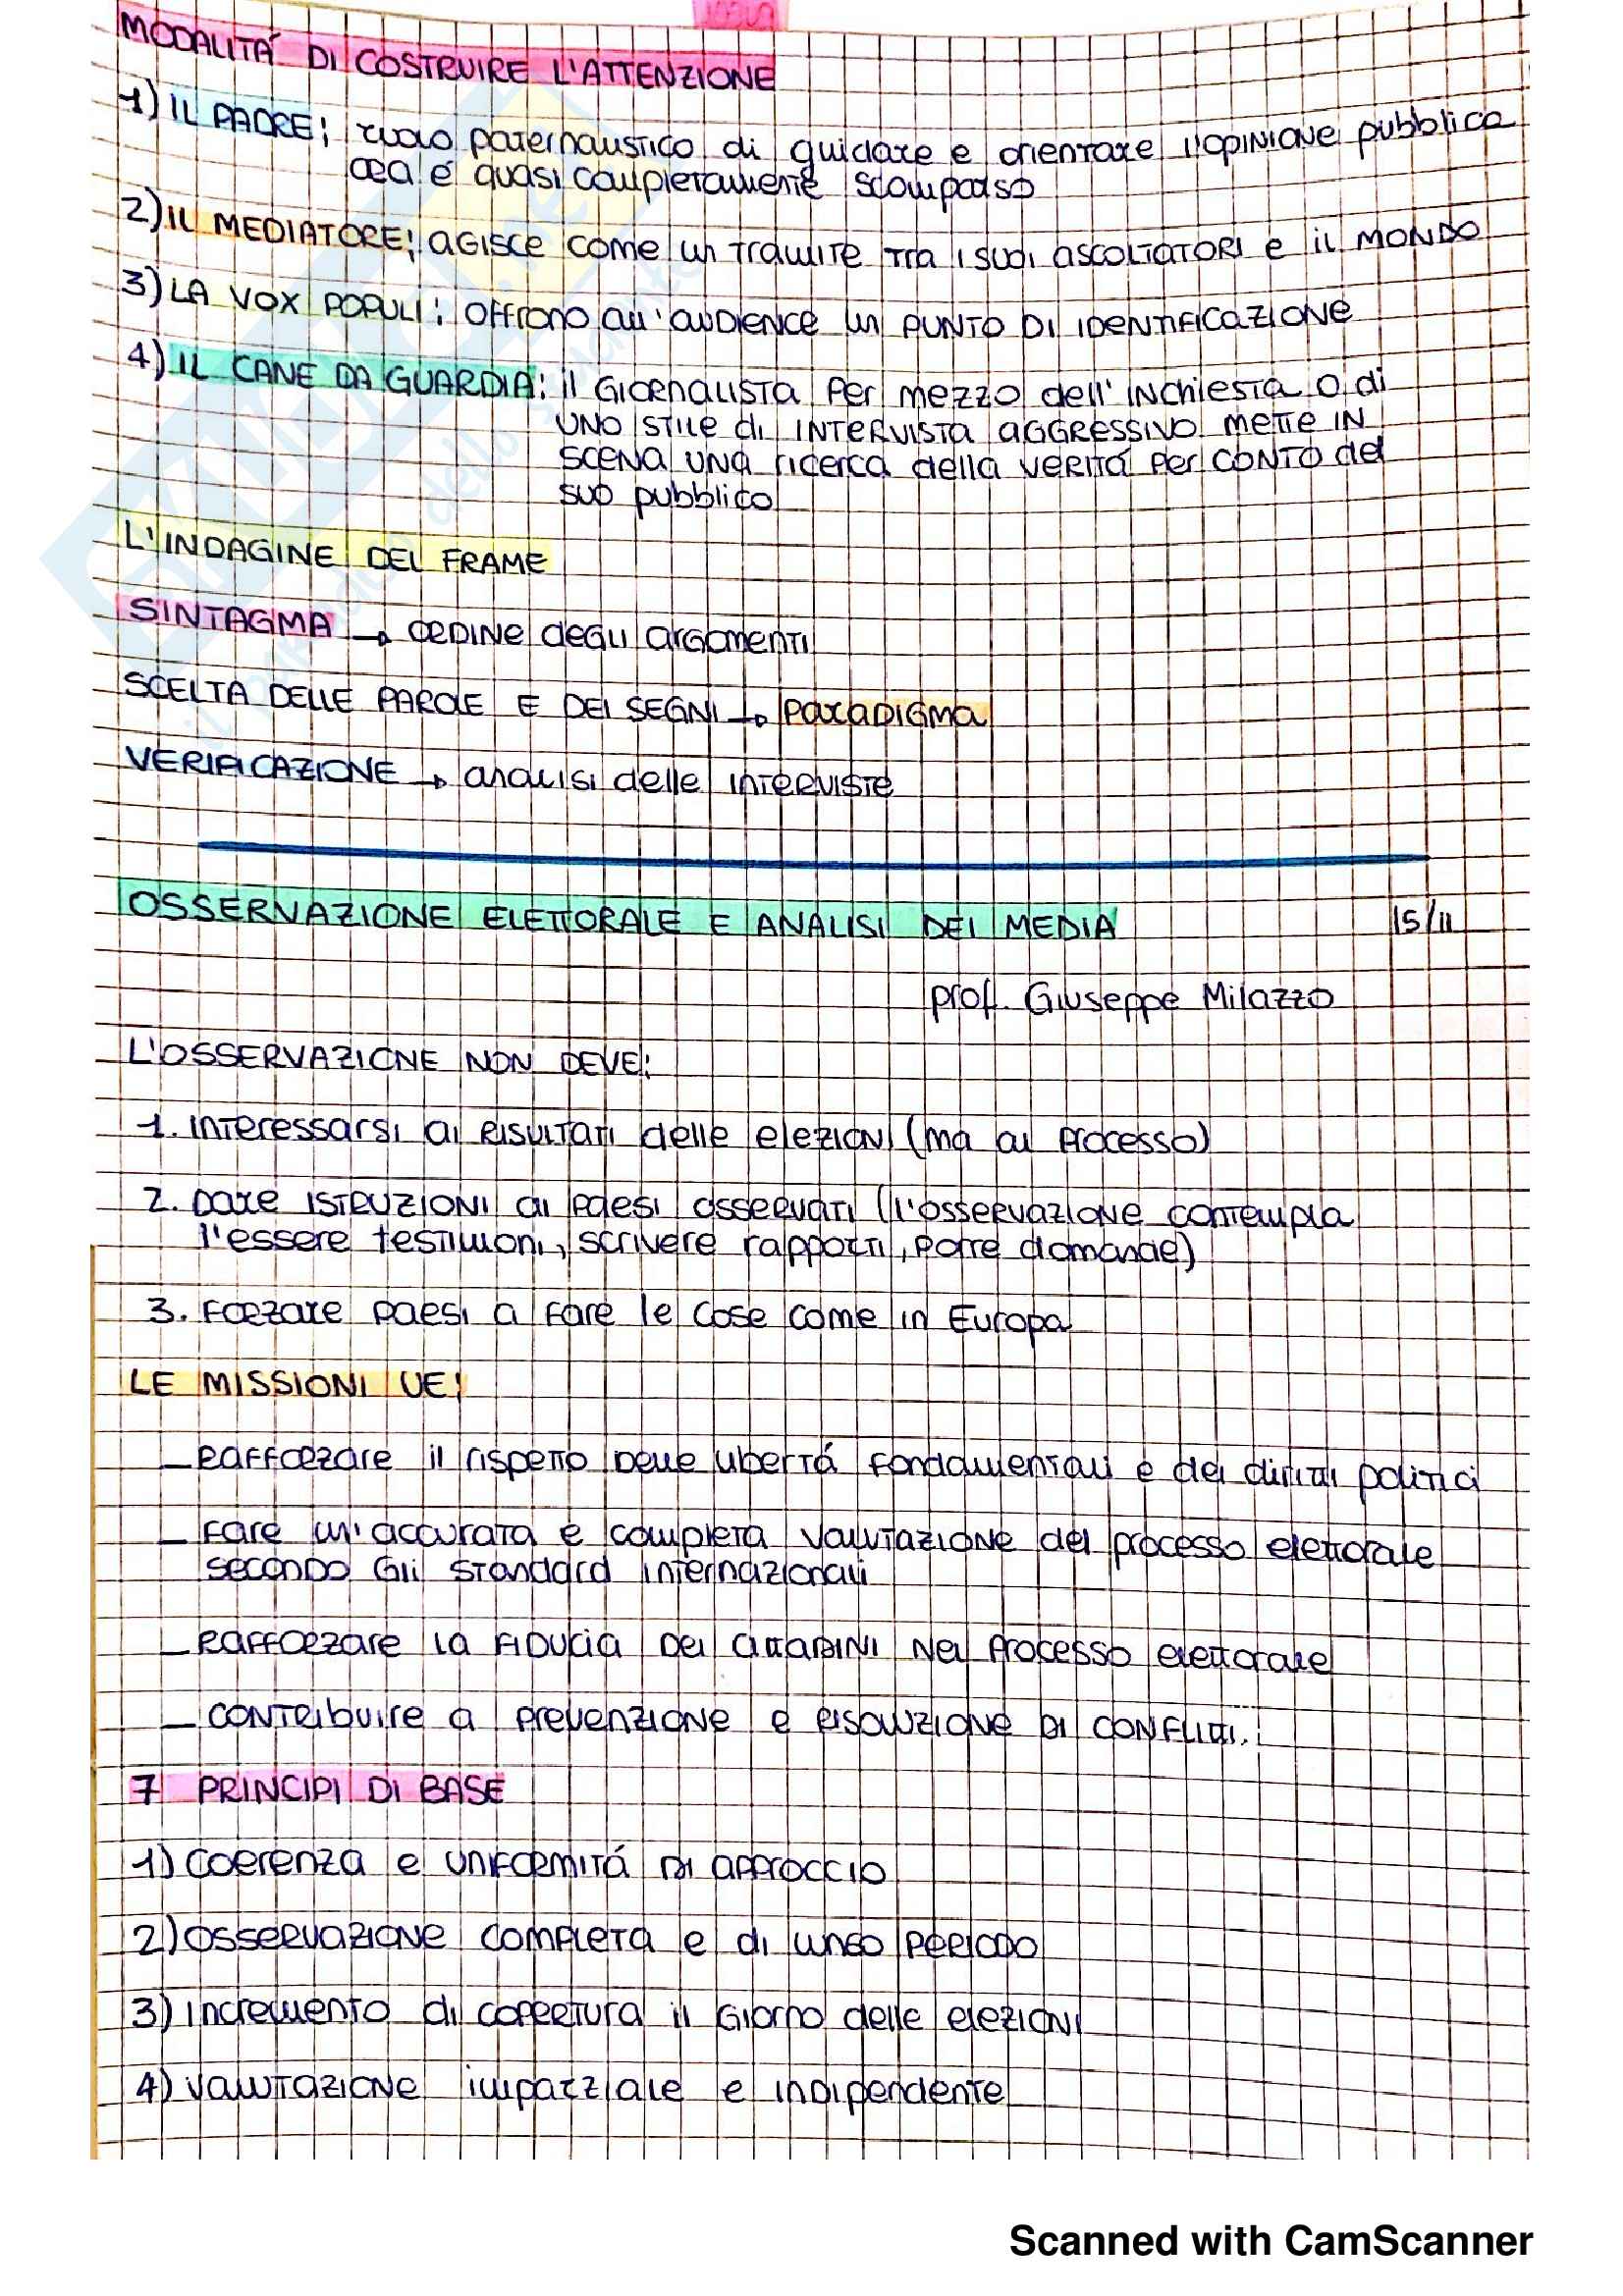 MODALITÁ DI COSTRUIRE L'ATTENZIONE
1) IL PADRE: ruolo paternalistico di guidare e orientare l'opinione pubblica
ora é quasi completamente scomparso
2) IL MEDIATORE: agisce come un tramite tra i suoi ascoltatori e il mondo
3) LA VOX POPULI: offrono all'audience un punto di identificazione
4) IL CANE DA GUARDIA: il giornalista per mezzo dell'inchiesta o di
uno stile di intervista aggressivo mette in
scena una ricerca della veritá per conto del
suo pubblico
L'INDAGINE DEL FRAME
SINTAGMA → ordine degli argomenti
SCELTA DELLE PAROLE E DEI SEGNI → paradigma
VERIFICAZIONE → analisi delle interviste
OSSERVAZIONE ELETTORALE E ANALISI DEI MEDIA 15/11
prof. Giuseppe Milazzo
L'OSSERVAZIONE NON DEVE:
1. interessarsi ai risultati delle elezioni (ma al processo)
2. dare istruzioni ai paesi osservati (l'osservazione contempla
l'essere testimoni, scrivere rapporti, porre domande)
3. forzare paesi a fare le cose come in Europa
LE MISSIONI UE:
– rafforzare il rispetto delle libertá fondamentali e dei diritti politici
– fare un'accurata e completa valutazione del processo elettorale
secondo gli standard internazionali
– rafforzare la fiducia dei cittadini nel processo elettorale
– contribuire a prevenzione e risoluzione di conflitti.
7 PRINCIPI DI BASE
1) coerenza e uniformitá di approccio
2) osservazione completa e di lungo periodo
3) incremento di copertura il giorno delle elezioni
4) valutazione imparziale e indipendente
Scanned with CamScanner